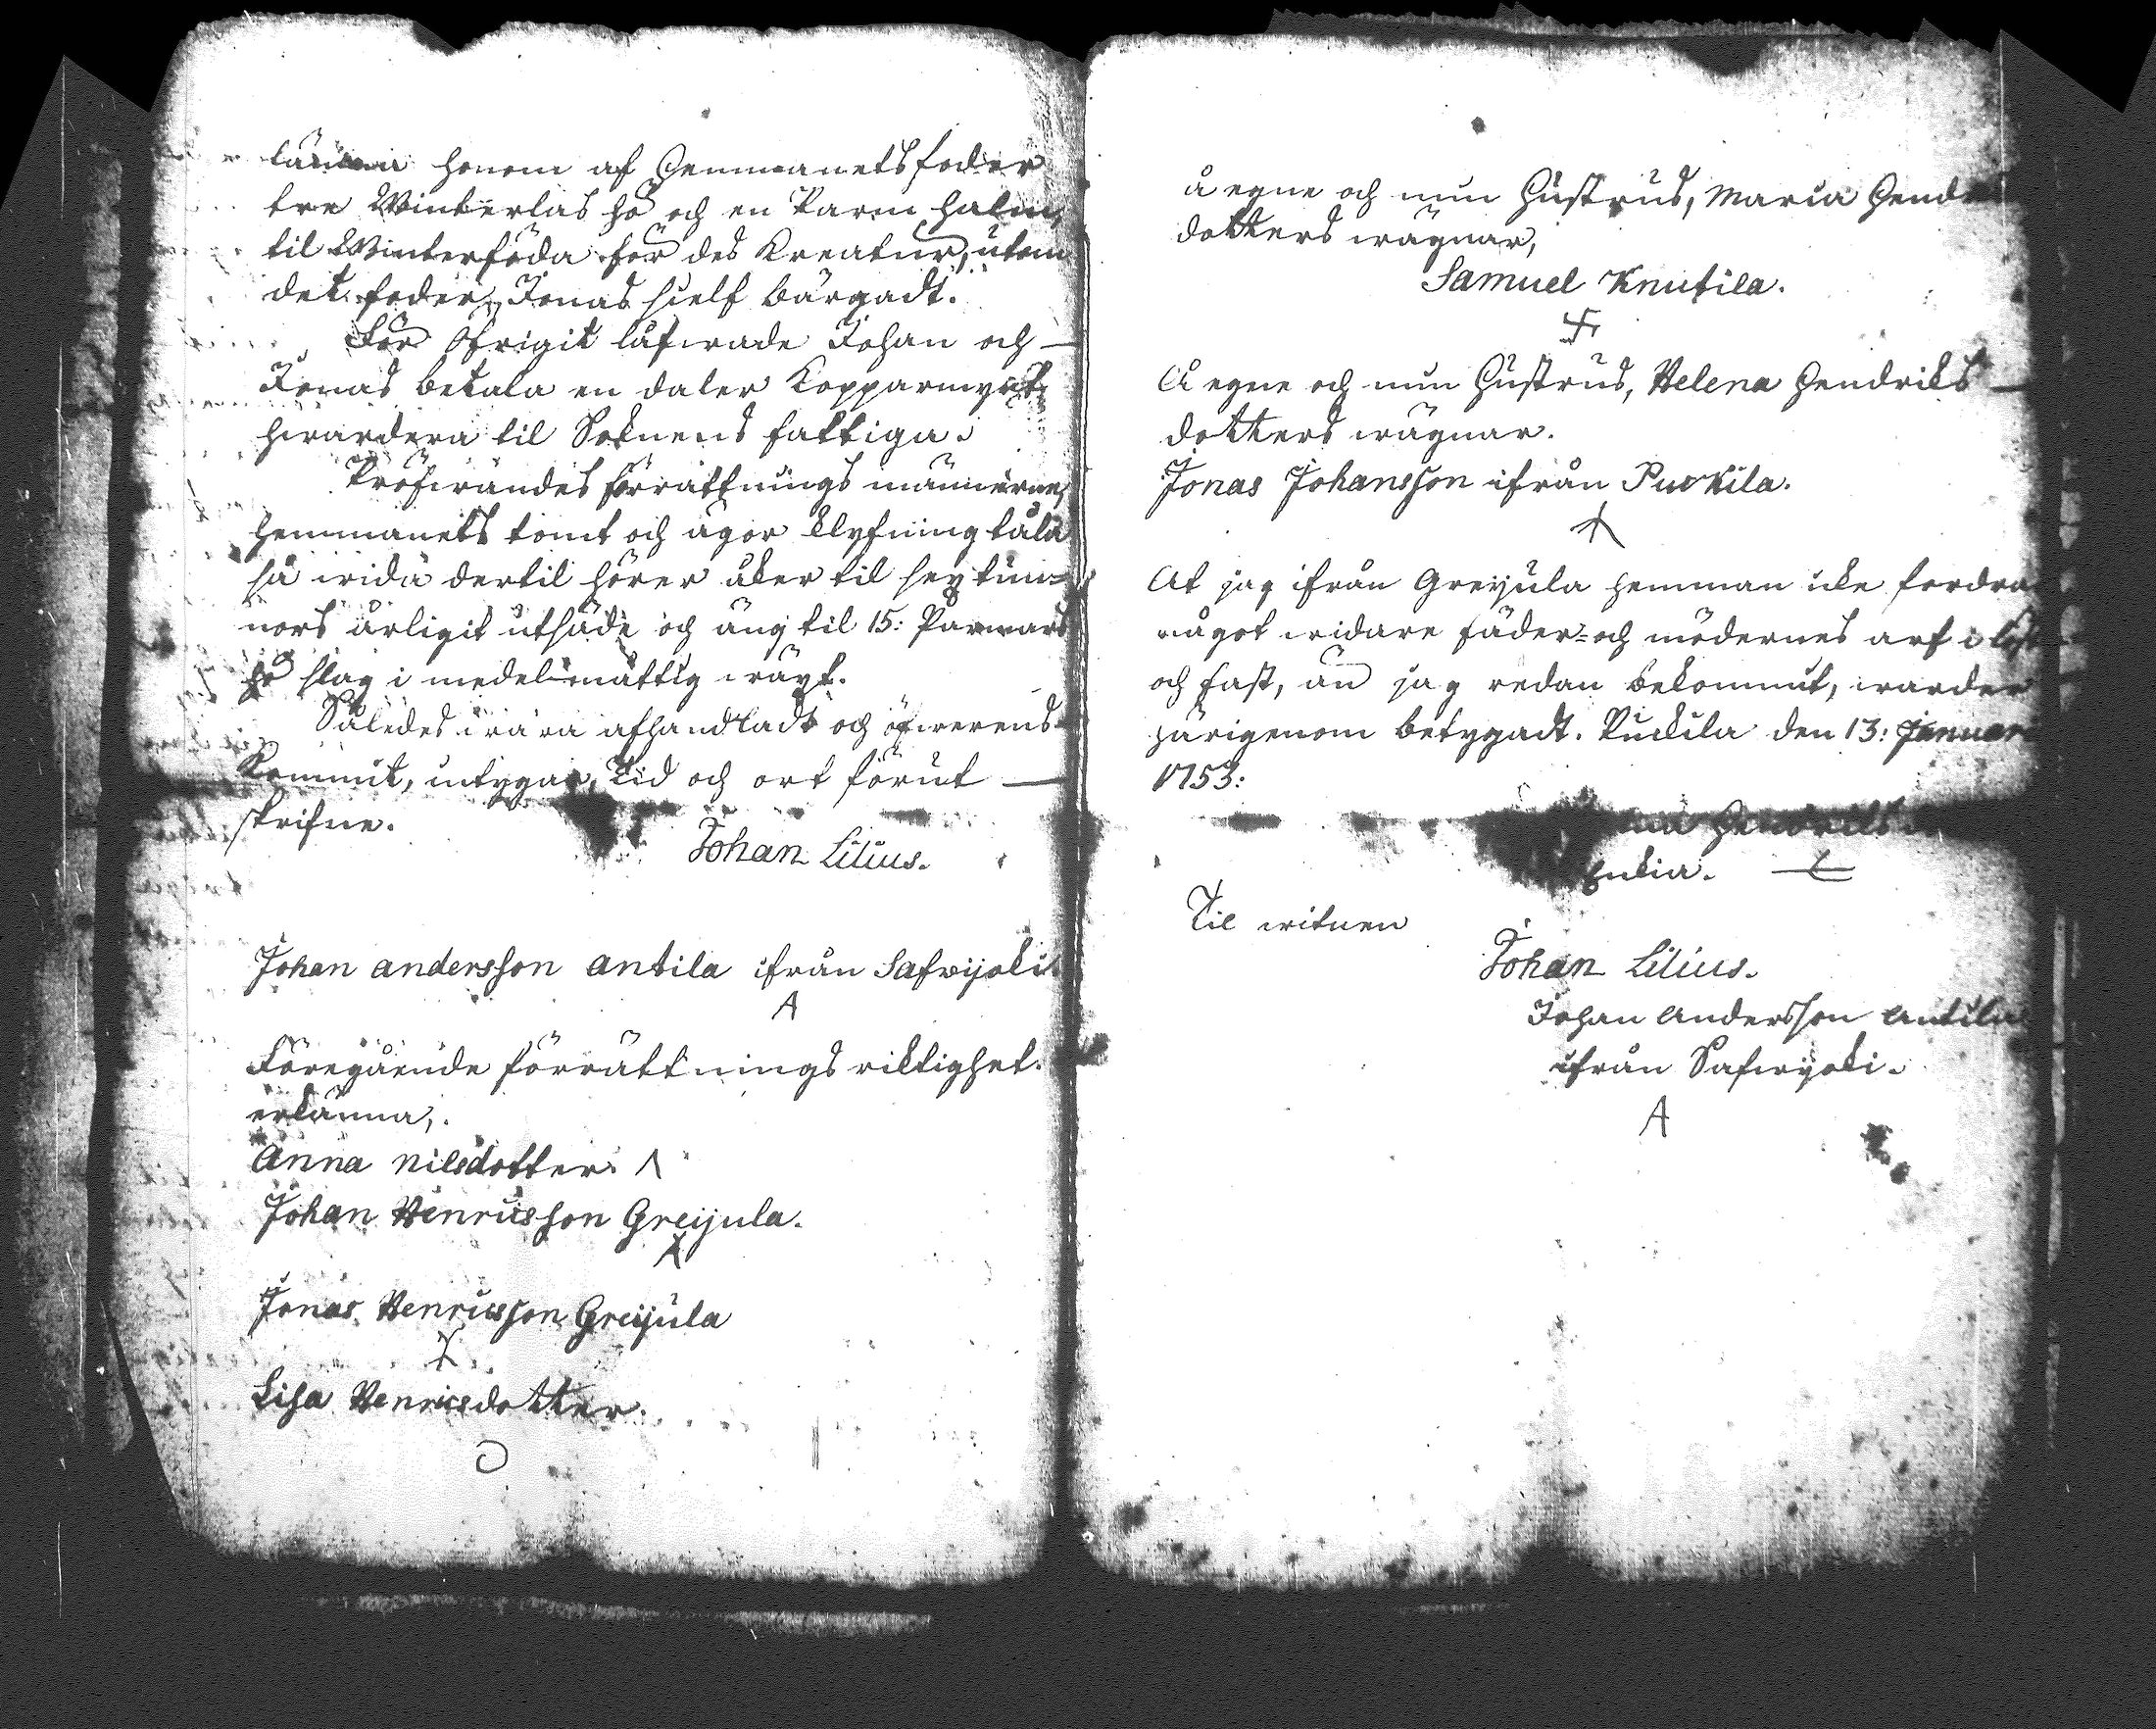 länna honom af Hemmanets foder
tre Winterlas hö och en Parm halm,
til Winterföda för des Kreatur, utom
det foder, Jonas sielf bärgadt.
För öfrigit låfwade Johan och
Jonas betala en daler Kopparmynt
hwardera til Soknens fattiga.
Pröfwandes förrättnings männerne,
hemmanets tomt och ägor klyfning tåla
så wida dertil hörer åker til sex tun-
nors årligit utsäde och äng til 15: Parmars
hö slag i medelmåttig wäxt.
Således wara afhandladt och öfwerens
Kommit, intygar, Tid och ort förut
skrifne.
Johan Lilius.
Johan andersson antila ifrån Safwijoki.
A
Föregående förrättnings riktighet.
erkänna,.
Anna nilsdotter. Λ
Johan Henricsson Greijula.
Jonas Henricsson Greijula
Lisa Henricsdotter.
å egne och min Hustrus, Maria Hend
dotters wägnar,
Samuel Knutila.
Å egne och min Hustrus, Helena Hendriks
dotters wägnar.
Jonas Johansson ifrån Puckila.
At jag ifrån Greijula hemman icke fordra
något widare fäder- och mödernes arf i löst
och fast, än jag redan bekommit, warder
härigenom betygadt. Puckila den 13: Januari
1753:
Hendriks
Enkia.
Til witnen
Johan Lilius.
Johan Andersson Antila
ifrån Safwijoki.
A